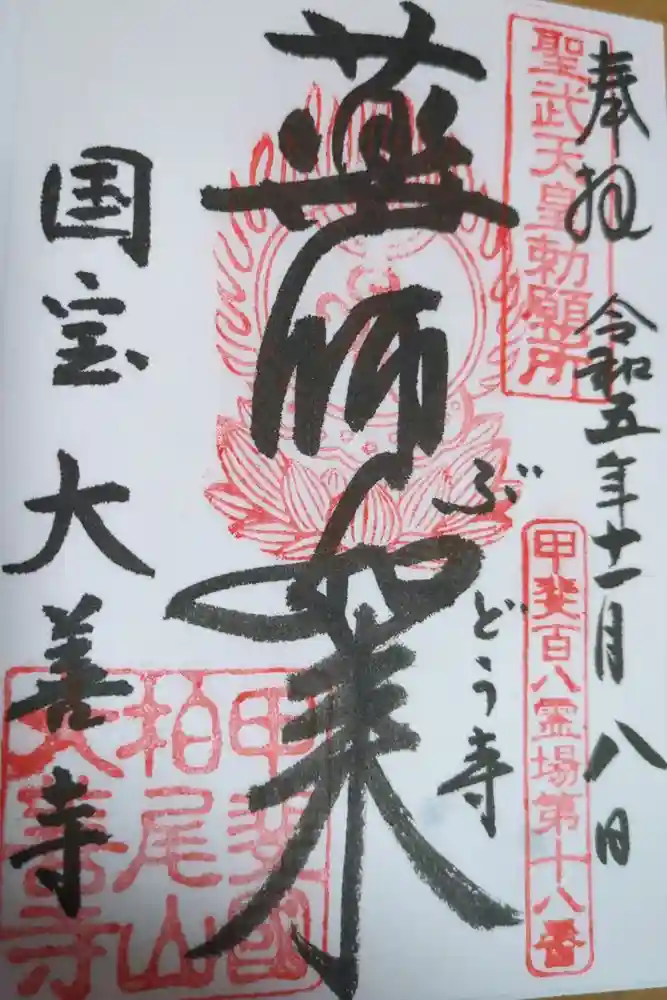 奉拝 令和五年十一月八日
聖武天皇勅願所
甲斐百八霊場第十八番
ぶどう寺
薬師如来
国宝 大善寺
甲斐國
柏尾山
大善寺